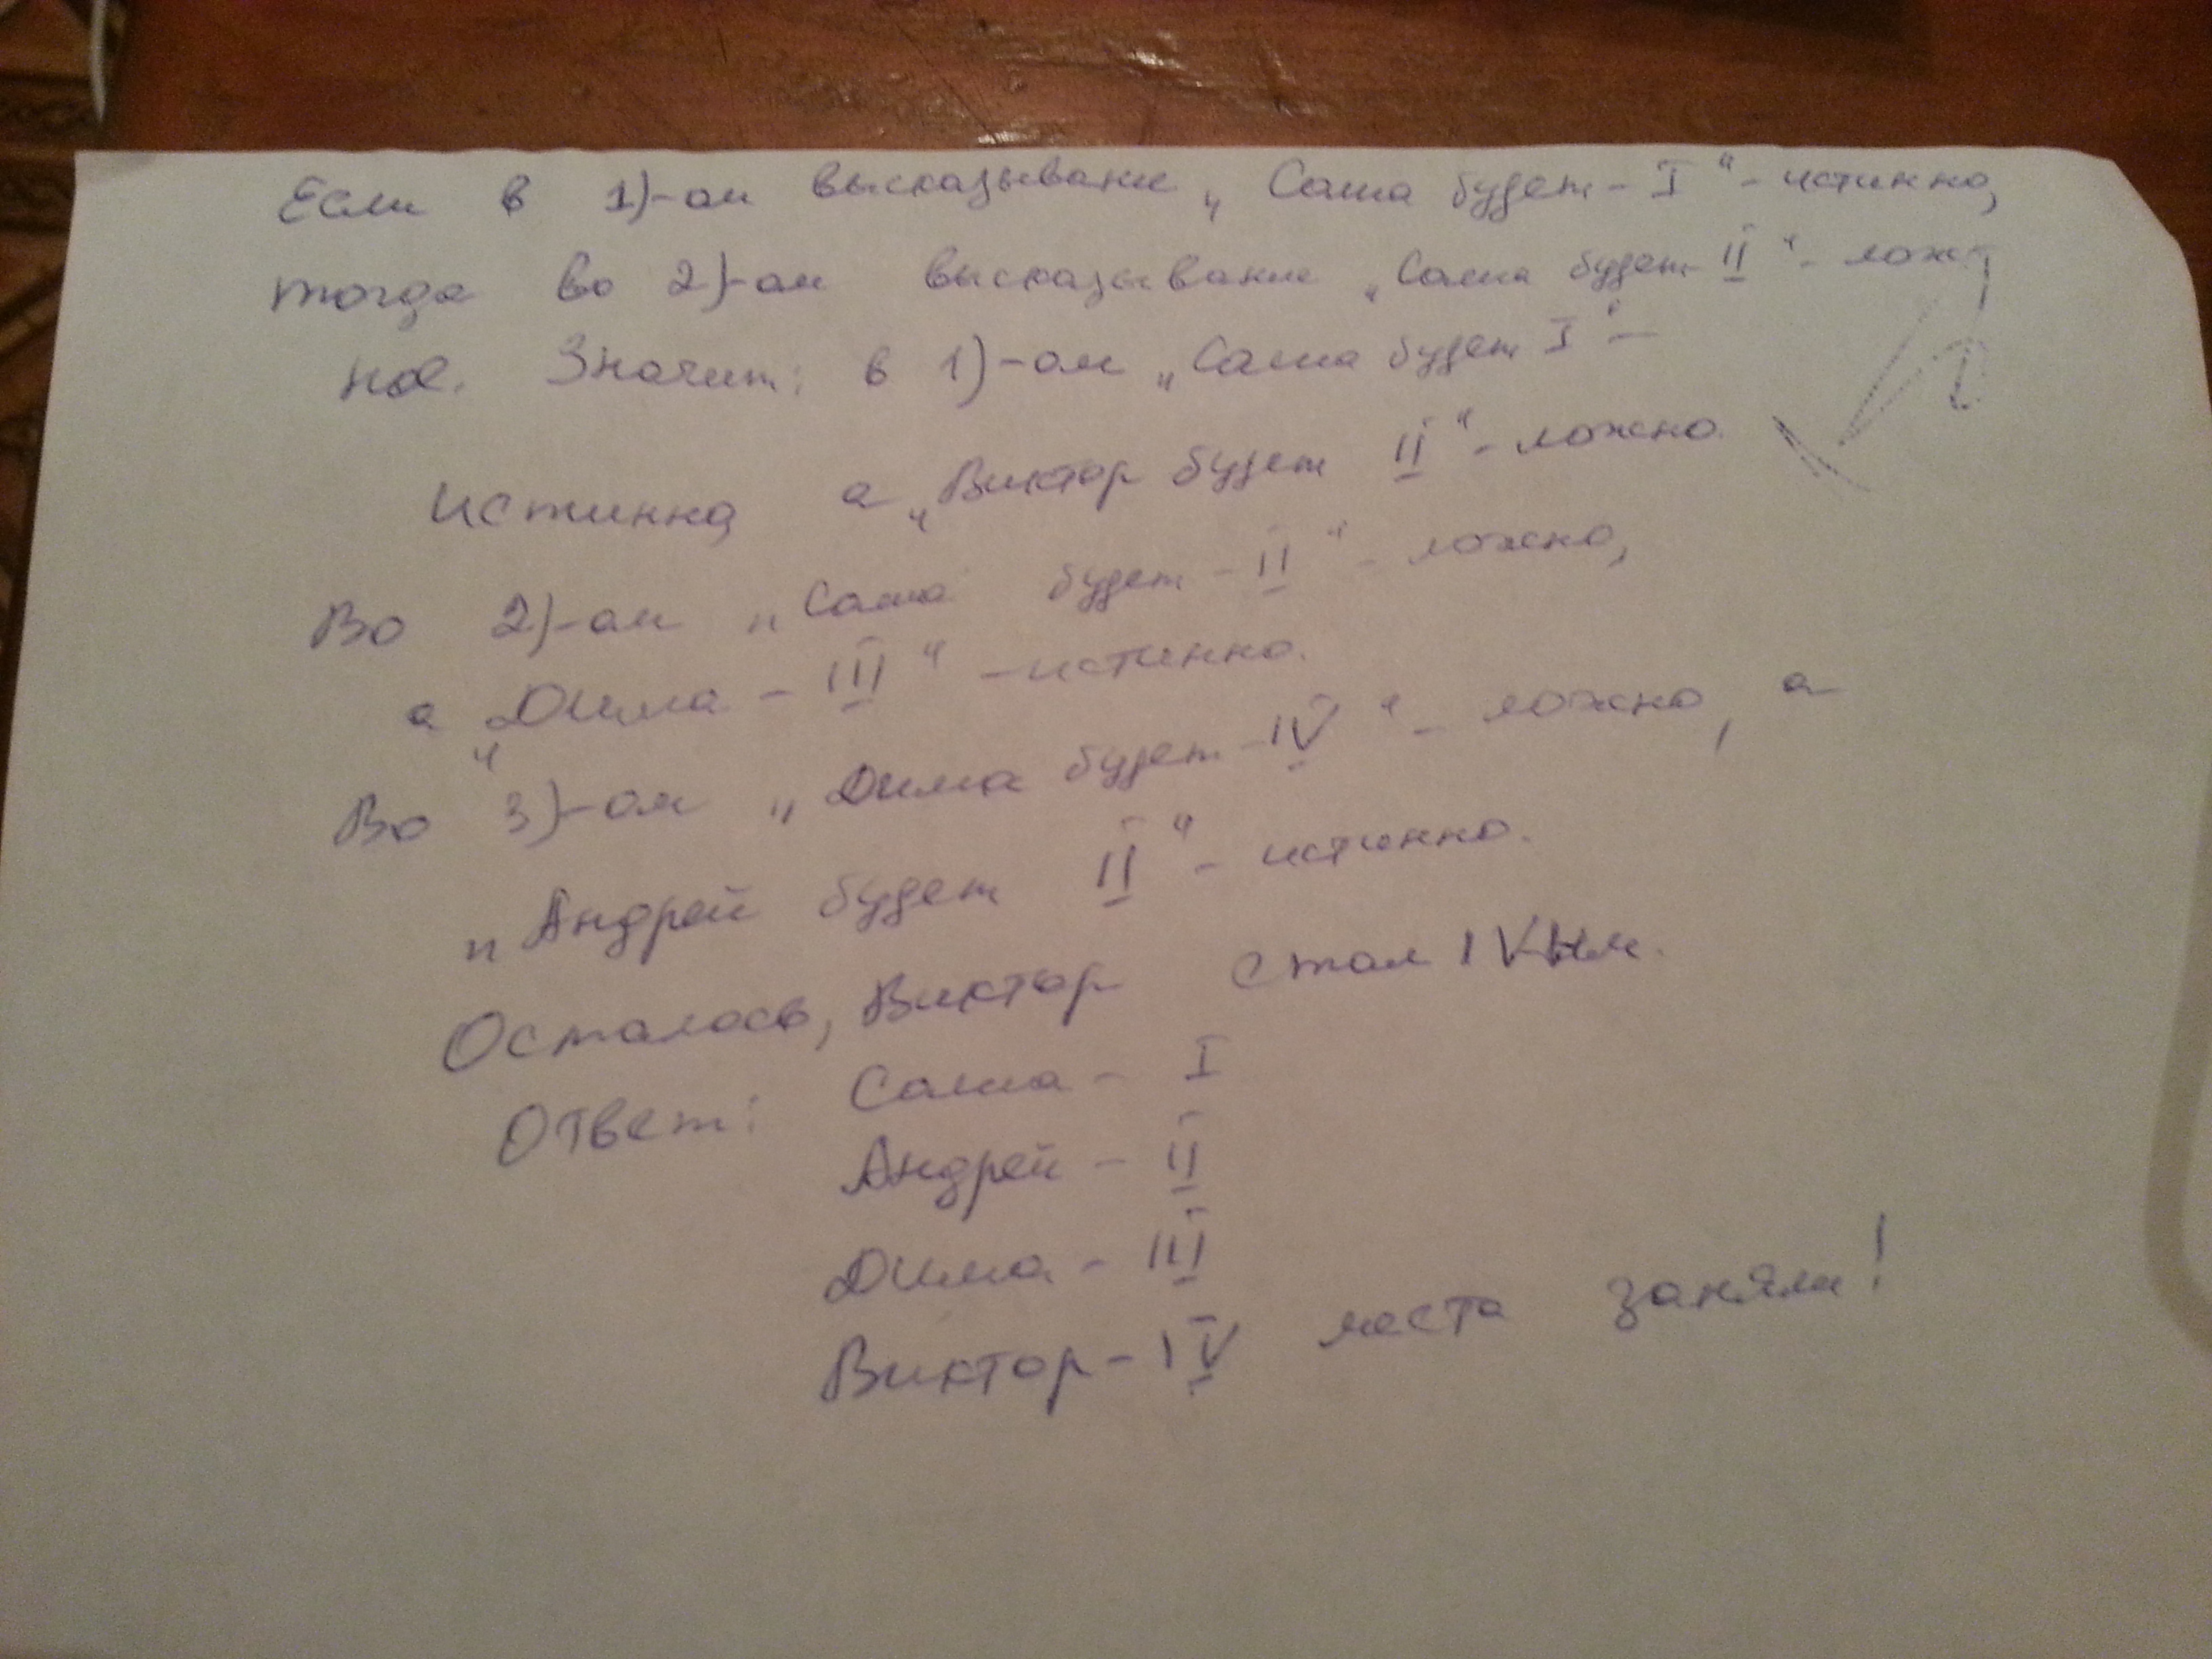 Если в 1)-ом высказывание „Саша будет - I“ - истинно,
тогда во 2)-ом высказывание „Саша будет II“ - лож-
ное. Значит: в 1)-ом „Саша будет I“ -
истинно, а „Виктор будет II“ - ложно.
Во 2)-ом „Саша будет - II“ - ложно,
а „Дима - III“ - истинно.
Во 3)-ом „Дима будет - IV“ - ложно, а
„Андрей будет II“ - истинно.
Осталось, Виктор стал IVным.
Ответ: Саша - I
Андрей - II
Дима - III
Виктор - IV места заняли!